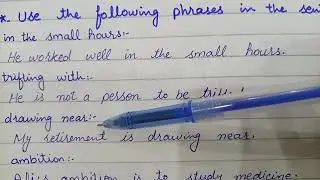 *. Use the following phrases in the sen
in the small hours:-
He worked well in the small hours.
trifling with:-
He is not a person to be
drawing near:-
My retirement is drawing near.
ambition:-
Ali's ambition is to study medicine.